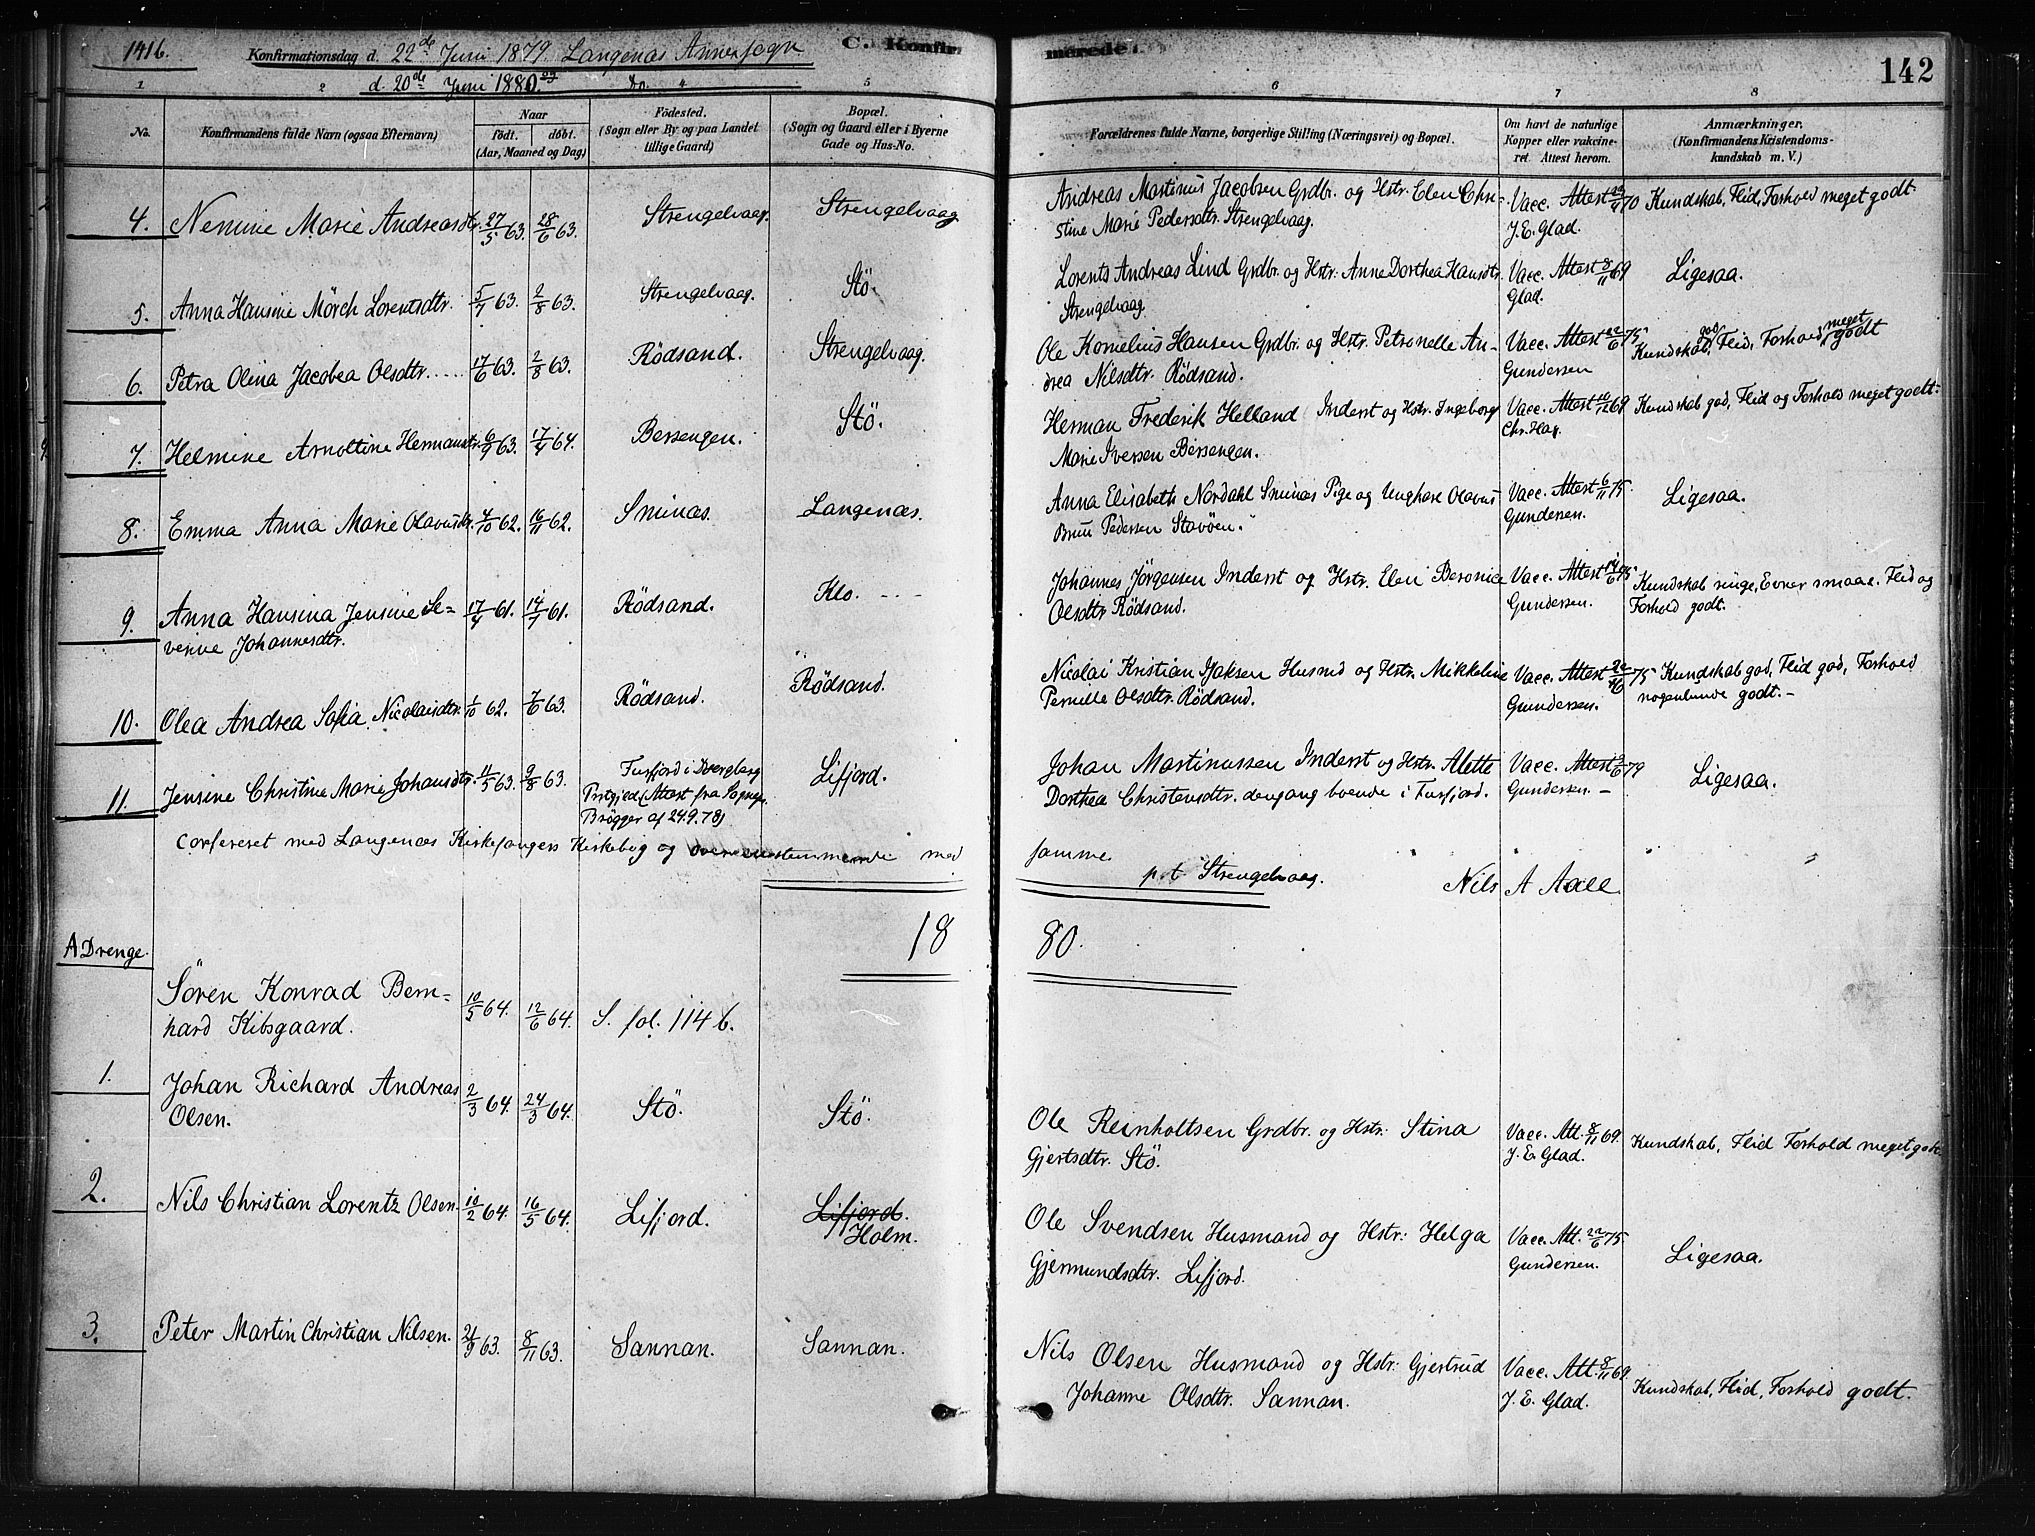 141b.
Konfirmationsdag d. 22de Juni 1879. Langenæs Annexsogn
C. Konfirmerede.
142
d. 20de Juni 1880. do. "
1 2 5 6 7 8
No.
Konfirmandens fulde Navn (ogsaa Efternavn)
Naar
født. døbt.
(Aar, Maaned og Dag)
Fødested.
(Sogn eller By og paa Landet
tillige Gaard)
Bopæl.
(Sogn og Gaard eller i Byerne
Gade og Hus-No.
Forældrenes fulde Navne, borgerlige Stilling (Næringsvei) og Bopæl.
Om havt de naturlige
Kopper eller vakcine-
ret. Attest herom.
Anmærkninger.
(Konfirmandens Kristendoms-
kundskab m. V.)
4. Nemine Marie Andreasdtr. 27/5 63. 28/6 63. Strengelvaag. Strengelvaag
Andreas Martinus Jacobsen Grdbr. og Hstr. Elen Chri-
stine Marie Pedersdtr. Strengelvaag.
Vacc. Attest 29/4 70
J. E. Glad.
Kundskab, Flid, Forhold meget godt.
5. Anna Hansine Mörch Lorentsdtr. 5/7 63. 2/8 63. Strengelvaag. Stö.
Lorents Andreas Lind Grdbr. og Hstr. Anne Dorthea Hansdtr.
Strengelvaag.
Vacc. Attest 8/11 69
Glad.
Ligesaa.
6. Petra Olina Jacobea Olsdtr. .... 17/6 63. 2/8 63. Rödsand. Strengelvaag.
Ole Kornelius Hansen Grdbr. og Hstr. Petronelle An-
drea Nilsdtr. Rödsand.
Vacc. Attest 22/6 75
Gundersen
Kundskab god, Flid, Forhold meget godt
7. Helmine Arnoltine Hermansdtr. 6/9 63. 17/4 64. Bersengen. Stö.
Herman Frederik Helland Inderst og Hstr. Ingeborg
Marie Iversen Bersengen.
Vacc. Attest 10/12 69
Chr. Hag.
Kundskab god, Flid og Forhold meget godt.
8. Emma Anna Marie Olavusdtr. 4/10 62. 16/11 62. Smines. Langenæs.
Anna Elisabeth Nordahl Sminæs Pige og Ungkarl Olavus
Bruu Pedersen Stavöen.
Vacc. Attest 6/11 75.
Gundersen.
Ligesaa.
9. Anna Hansina Jensine Se-
verine Johannesdtr. 17/4 61. 14/7 61. Rödsand. Klo. ---
Johannes Jörgensen Inderst og Hstr. Elen Beronice
Olsdtr. Rödsand.
Vacc. Attest 19/6 75.
Gundersen.
Kundskab ringe, Evner smaae. Flid og
Forhold godt.
10. Olea Andrea Sofia Nicolaisdtr. 1/10 62. 7/6 63. Rödsand. Rödsand.
Nicolai Kristian Isaksen Husmd og Hstr. Mikkeline
Pernille Olsdtr. Rödsand.
Vacc. Attest 22/6 75
Gundersen.
Kundskab god, Flid god, Forhold
nogenlunde godt.-
11. Jensine Christine Marie Johansdtr. 11/5 63. 9/8 63. Tusfjord i Dvergberg
Prstgjed. (Attest fra Sognepr.
Brögger af 24.9.78)
Lifjord.
Johan Martinussen Inderst og Hstr. Alette
Dorthea Christensdtr. dengang boende i Tusfjord.
Vacc. Attest 2/6 79
Gundersen. -
Ligesaa.
Confereret med Langenæs Kirkesangers Kirkebog og overeenstemmende med samme.
p.t. Strengelvaag. Nils A Aall
1880.
A Drenge.
Sören Konrad Bern-
hard Kibsgaard. 10/5 64. 12/6 64. S. fol. 114 b.
1. Johan Richard Andreas
Olsen. 2/3 64. 24/3 64. Stö. Stö.
Ole Reinholtsen Grdbr. og Hstr. Stina
Gjertsdtr. Stö.
Vacc. Att. 8/11 69.
J. E. Glad.
Kundskab, Flid Forhold meget godt.
2. Nils Christian Lorentz Olsen. 10/2 64. 16/5 64. Lifjord. Lifjord.
Holm.
Ole Svendsen Husmand og Hstr: Helga
Gjermundsdtr. Lifjord.
Vacc. Att. 22/6 75
Gundersen.
Ligesaa.
3. Peter Martin Christian Nilsen. 21/9 63. 8/11 63. Sannan. Sannan.
Nils Olsen Husmand og Hstr: Gjertrud
Johanne Olsdtr. Sannan.
Vacc. Att. 8/11 69.
J. E. Glad.
Kundskab, Flid, Forhold godt.